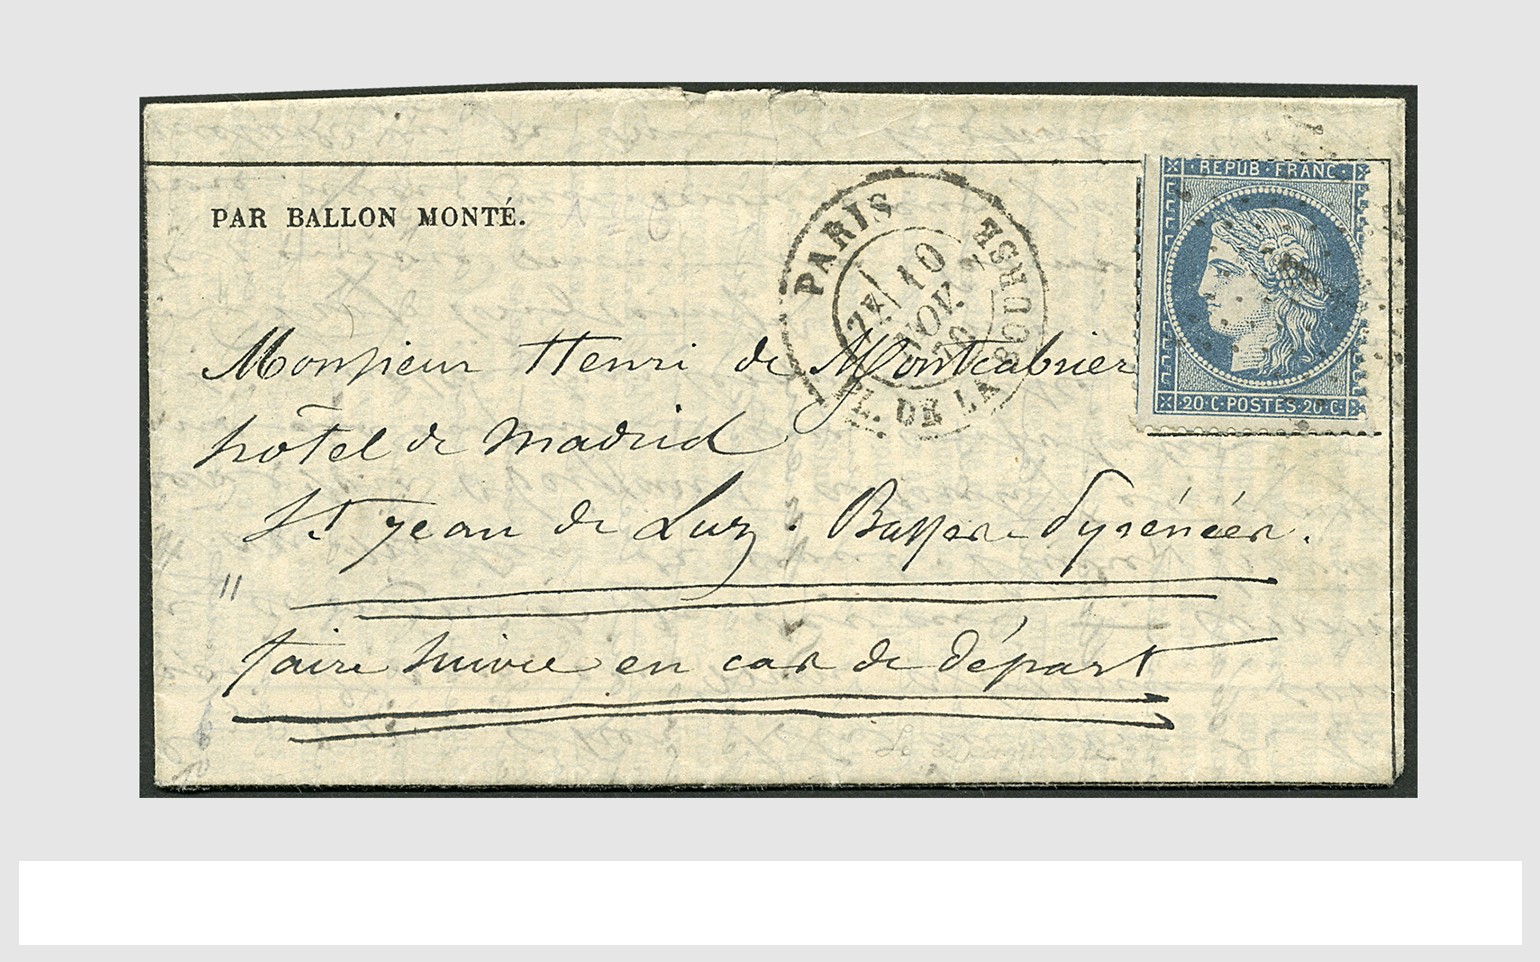 PAR BALLON MONTÉ.
PARIS
PL. DE LA BOURSE
2E/ 10
NOV.
70
REPUB·FRANC·
20·C·POSTES·20·C·
Monsieur Henri de Montcabrier
hôtel de Madrid
St Jean de Luz. Basses-Pyrénées.
faire suivre en cas de départ